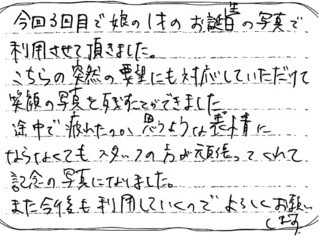 今回3回目で娘の1才のお誕生の写真で
利用させて頂きました。
こちらの突然の要望にも対応していただけて
笑顔の写真を残すことができました
途中で疲れたのか、思うような表情に
ならなくてもスタッフの方が頑張ってくれて
記念の写真になりました。
また今後も利用していくのでよろしくお願い
します。